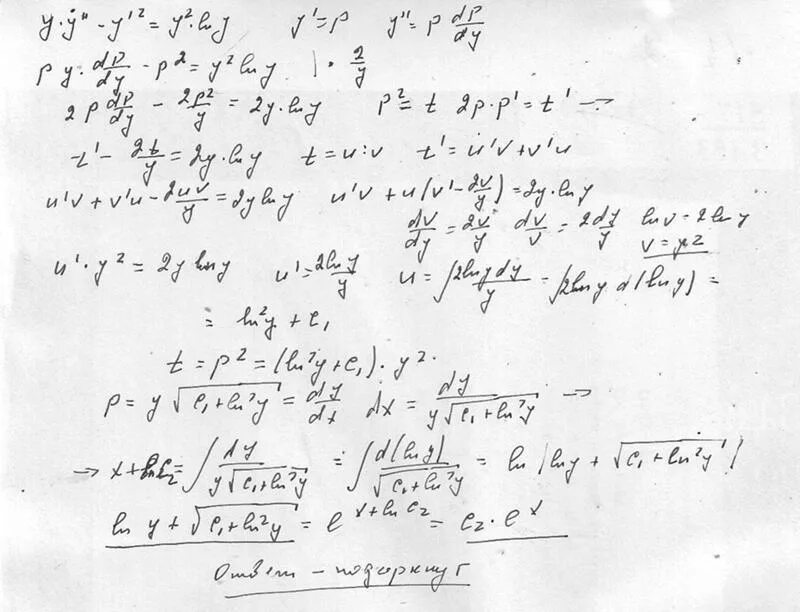 y·y'' - y'² = y²·ln y    y' = p    y'' = p dp/dy
p y·dp/dy - p² = y² ln y   | · 2/y
2p dp/dy - 2p²/y = 2y·ln y    p² = t   2p·p' = t' →
t' - 2t/y = 2y·ln y    t = u·v    t' = u'v + v'u
u'v + v'u - 2uv/y = 2y ln y    u'v + u(v' - 2v/y) = 2y·ln y
dv/dy = 2v/y    dv/v = 2dy/y    ln v = 2 ln y
v = y²
u'·y² = 2y ln y    u' = 2ln y/y    u = ∫ 2ln y dy/y = ∫ 2ln y d(ln y) =
= ln²y + C₁
t = p² = (ln²y + C₁)·y².
p = y √(C₁ + ln²y) = dy/dx    dx = dy/(y√(C₁ + ln²y)) →
→ x + ln C₂ = ∫ dy/(y√(C₁ + ln²y)) = ∫ d(ln y)/√(C₁ + ln²y) = ln |ln y + √(C₁ + ln²y)|
ln y + √(C₁ + ln²y) = e^(x + ln C₂) = C₂·e^x
Ответ – подчеркнут